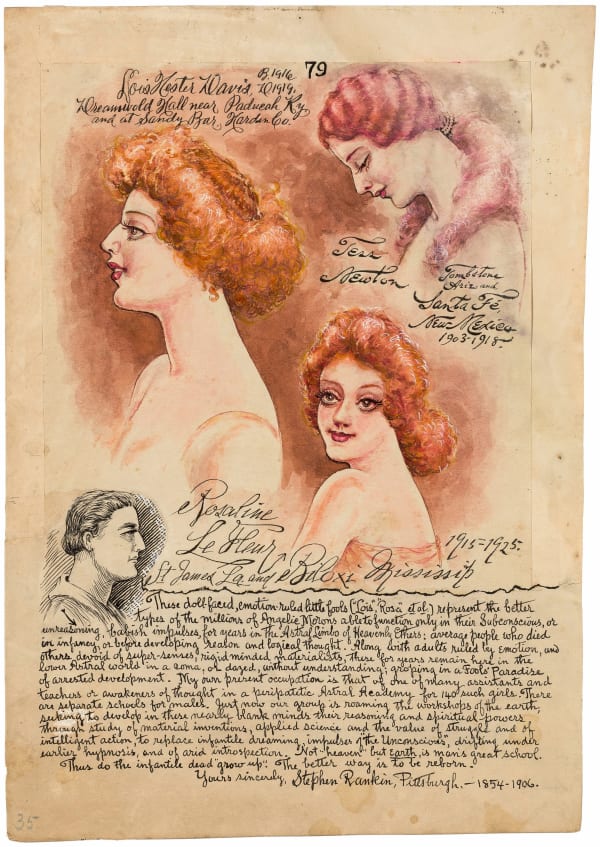 79
Lois Hester Davis, B. 1916 D 1919.
Dreamwold Hall near Paducah Ky
and at Sandy Bar, Hardin Co.
Tess
Newton
Tombstone
Ariz and
Santa Fé,
New Mexico
1903-1918.
Rosaline
Le Fleur
1915=1925.
St James La and Biloxi Mississip
These doll-faced, emotion-ruled little fools ("Lois", "Rosa" et al.) represent the better
types of the millions of Angelic Morons able to function only in their Subconscious, or
unreasoning, babyish impulses, for years in the Astral Limbo of Heavenly Ethers; average people who died
in infancy, or before developing reason and logical thought. Along with adults ruled by emotion, and
others devoid of super-senses, rigid minded materialists, these for years remain here in the
lower Astral world in a coma, or dazed, without understanding; groping in a Fools' Paradise
of arrested development. My own present occupation is that of one of many assistants and
teachers or awakeners of thought in a peripatetic Astral Academy for 140 such girls. There
are separate schools for males. Just now our group is roaming the workshops of the earth,
seeking to develop in these nearly blank minds their reasoning and spiritual powers
through study of material inventions, applied science and the value of struggle and of
intelligent action, to replace infantile dreaming, impulses of the 'Unconscious', drifting under
earlier hypnosis, and of arid introspection. "Not "heaven" but Earth is man's great school.
Thus do the infantile dead 'grow up'. The better way is to be reborn.
Yours sincerely, Stephen Rankin, Pittsburgh. — 1854-1906.
35